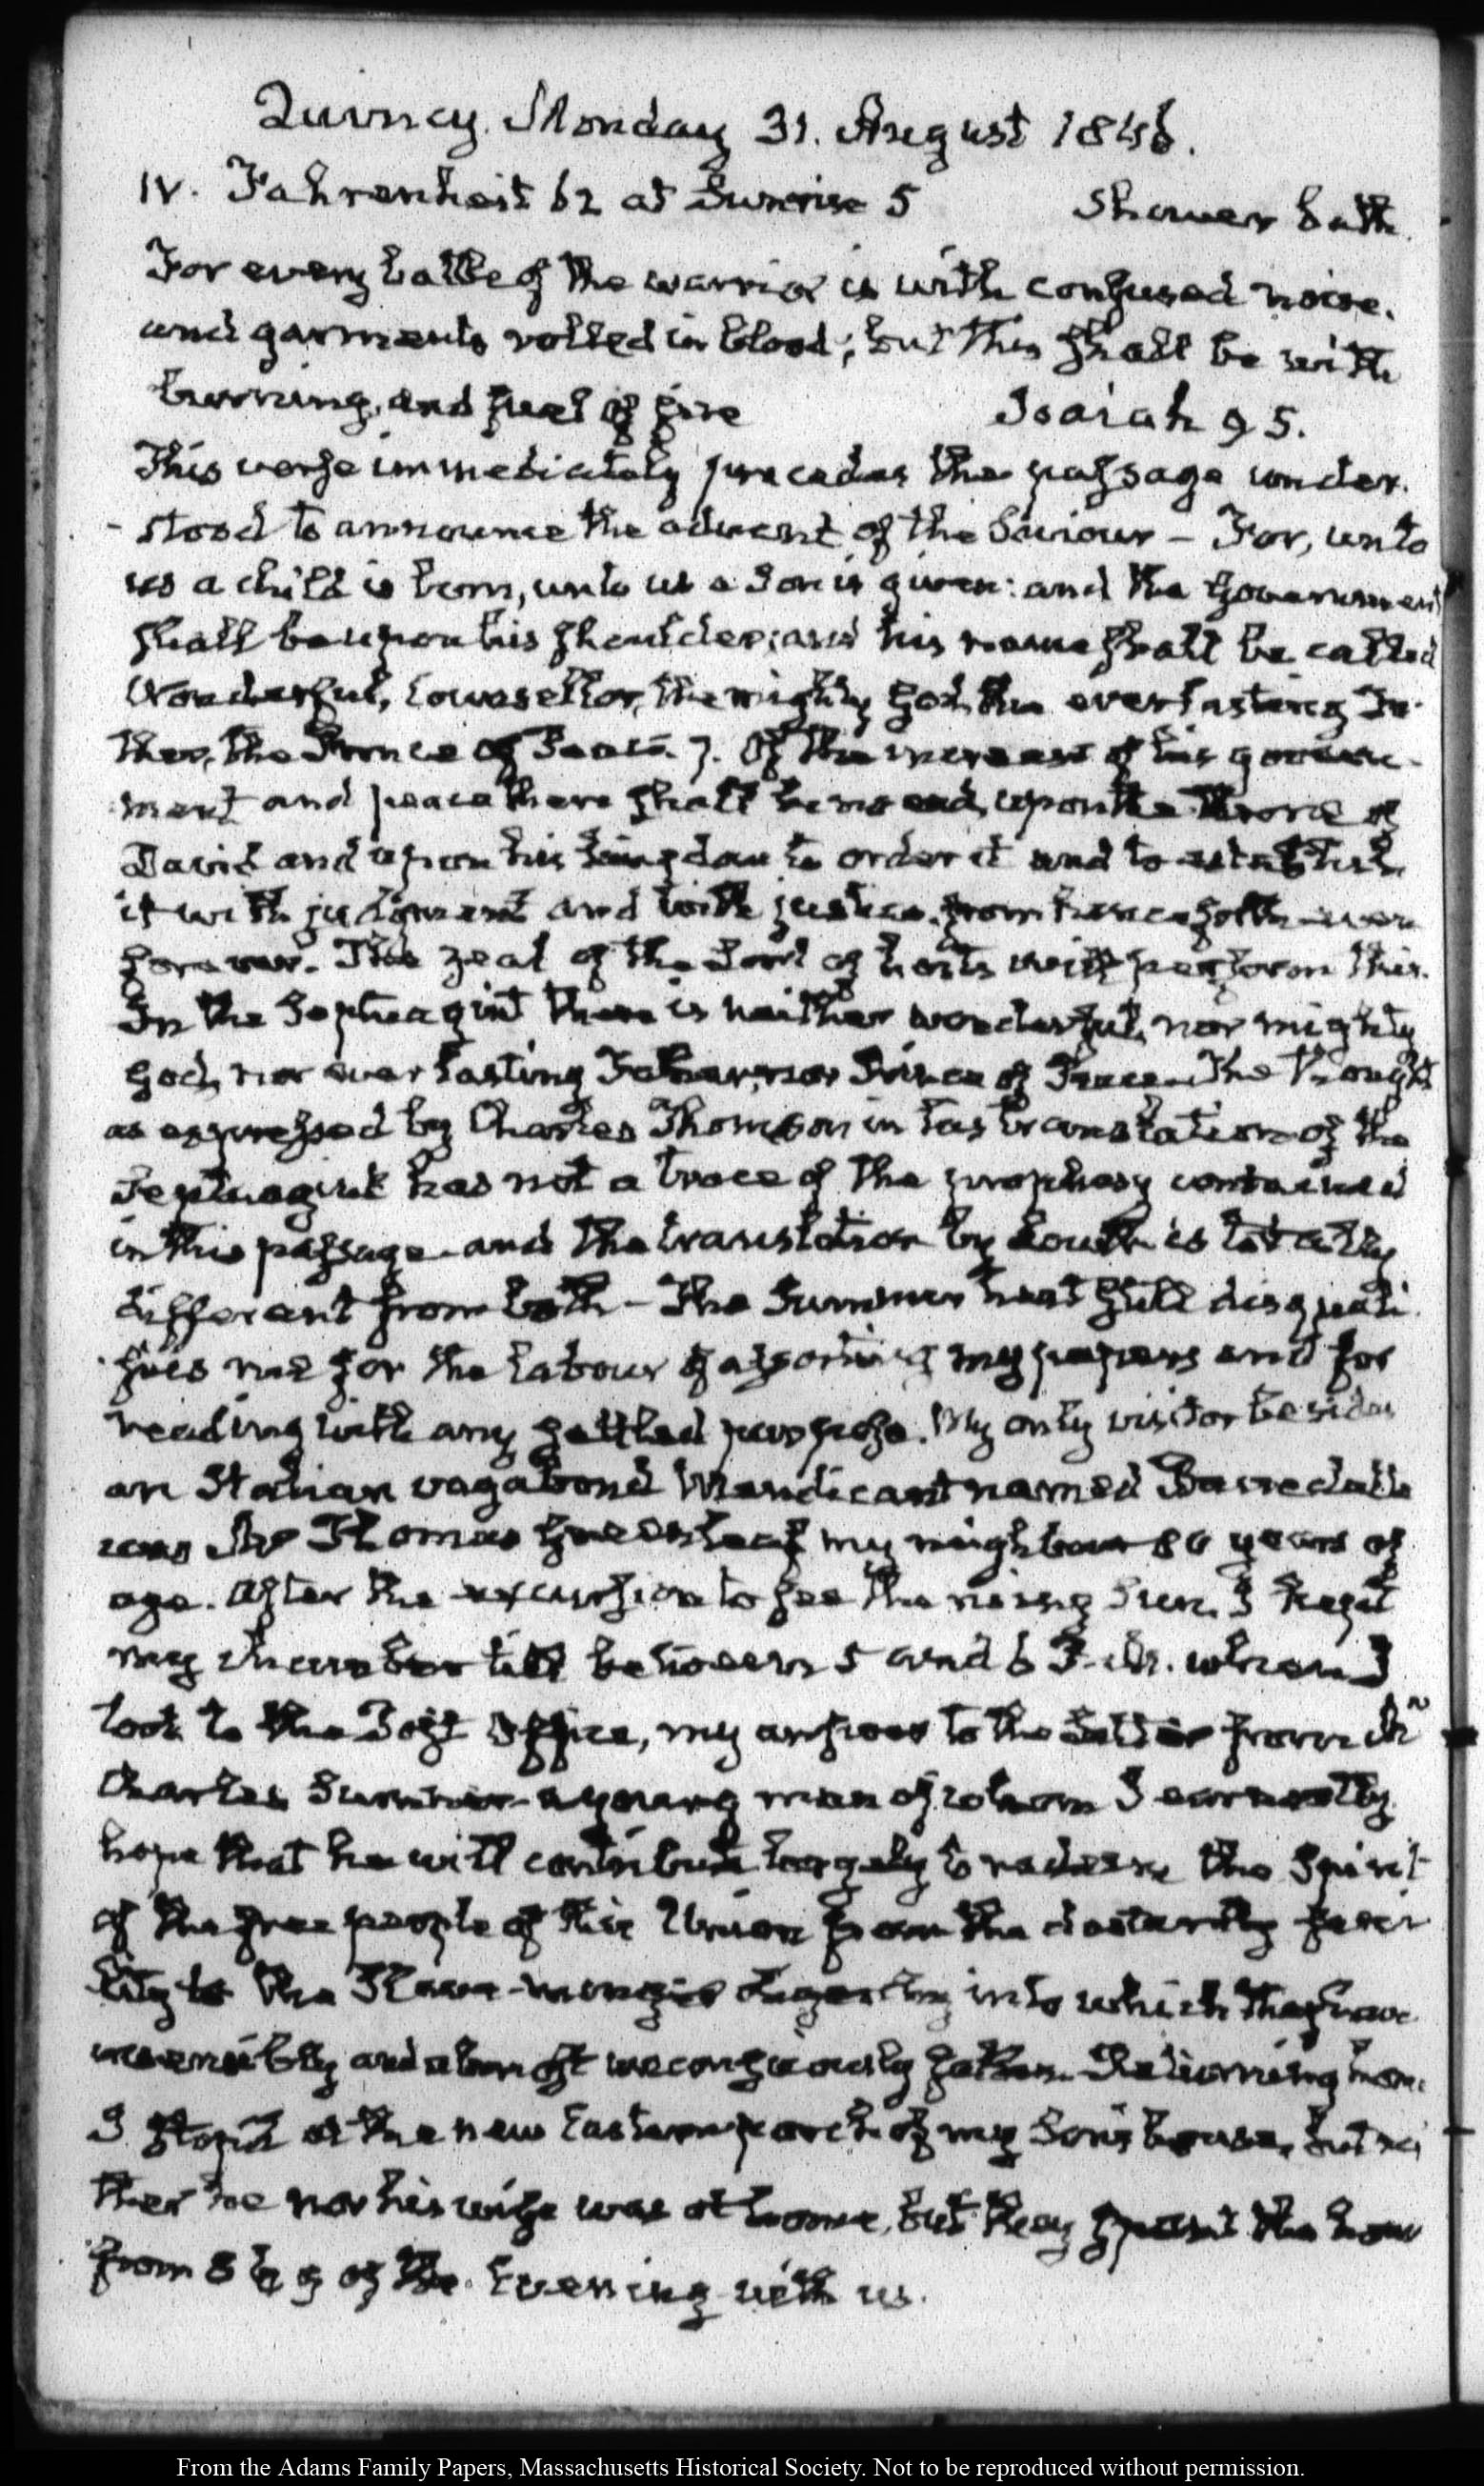 Quincy Monday 31. August 1846.
IV. Fahrenheit 62 at Sunrise 5 Shower bath.
For every battle of the warrior is with confused noise.
and garments rolled in blood; but this shall be with
burning, and fuel of fire Isaiah 9 5.
This verse immediately precedes the passage under-
-stood to announce the advent of the Saviour – For, unto
us a child is born, unto us a Son is given: and the Government
shall be upon his shoulder; and his name shall be called
Wonderful, Counsellor, the mighty God, the everlasting Fa-
ther, the Prince of Peace. 7. Of the increase of his govern-
ment and peace there shall be no end, upon the Throne of
David and upon his kingdom to order it and to establish
it with judgment and with justice, from henceforth even
forever. The zeal of the Lord of hosts will perform this.
In the Septuagint there is neither wonderful, nor mighty
God, nor everlasting Father, nor Prince of Peace. The thought
as expressed by Charles Thomson in his translation of the
Septuagint has not a trace of the prophesy contained
in this passage and the translation by Louth is totally
different from both – The Summer heat still disquali-
fies me for the labour of assorting my papers and for
reading with any settled purpose. My only visitor besides
an Italian vagabond Mendicant named
was Mr Thomas Greenleaf my neighbour 80 years of
age. After the excursion to see the rising Sun, I kept
my chamber till between 5 and 6 P.M. when I
took to the Post Office, my answer to the Letter from Mr
Charles Sumner a young man of whom I earnestly
hope that he will contribute largely to redeem the Spirit
of the free people of this Union from the dastardly servi-
lity to the Slave-monger oligarchy into which they have
insensibly and almost unconsciously fallen. Returning home
I stop'd at the new Eastern porch of my Son's house, but nei
ther he nor his wife was at home, but they spent the hour
from 8 to 9 of the Evening with us.
From the Adams Family Papers, Massachusetts Historical Society. Not to be reproduced without permission.